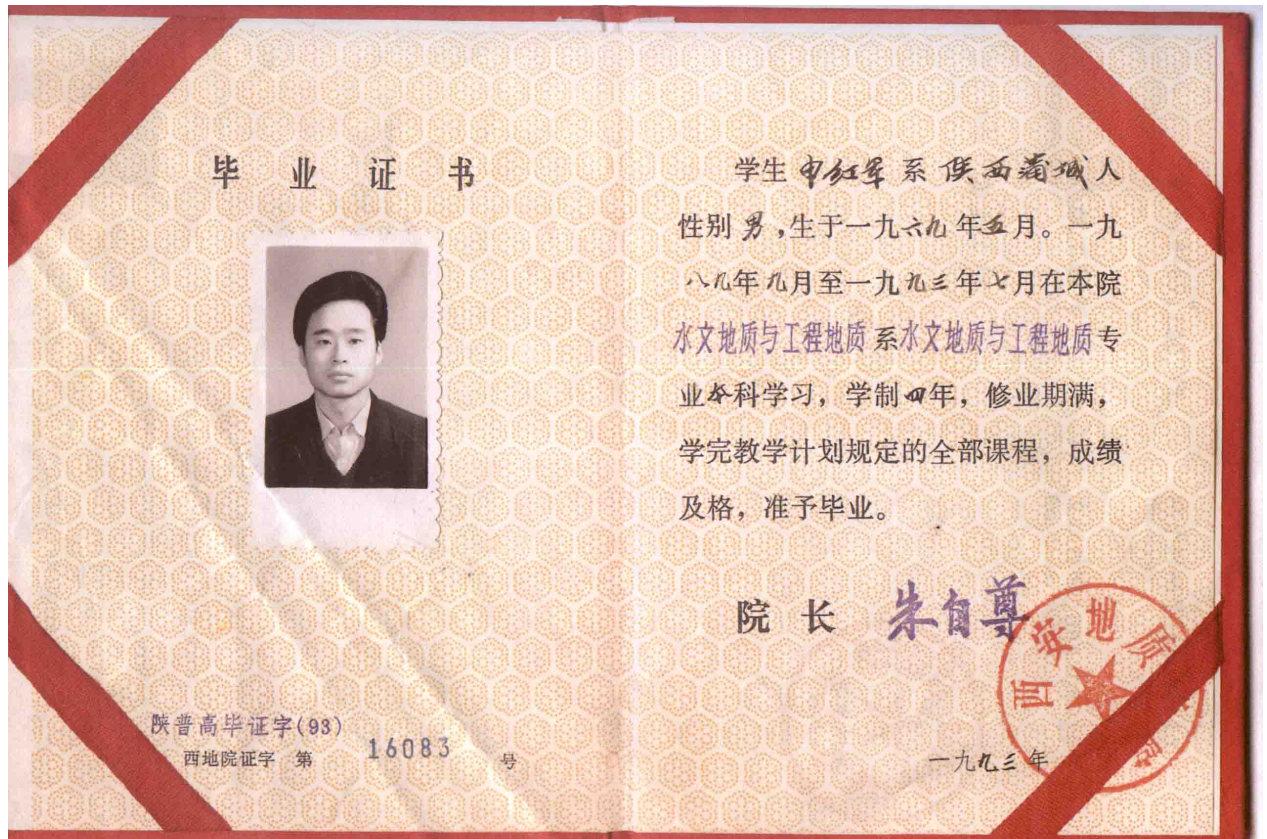 毕业证书
陕普高毕证字(93)
西地院证字 第 16083 号
学生 申红军 系 陕西蒲城 人
性别 男，生于一九六九年五月。一九
八九年九月至一九九三年七月在本院
水文地质与工程地质 系 水文地质与工程地质 专
业本科学习，学制四年，修业期满，
学完教学计划规定的全部课程，成绩
及格，准予毕业。
院长 朱自尊
西安地质
院
一九九三年